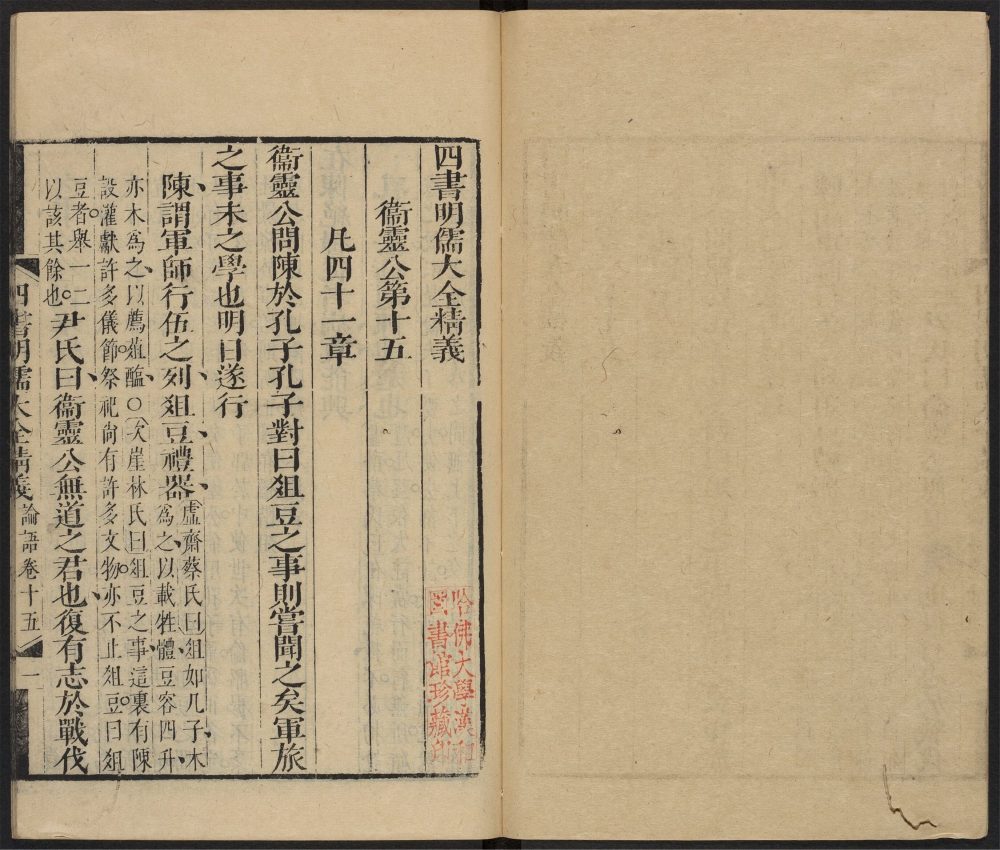 四書明儒大全精義
衞靈公第十五
凡四十一章
衞靈公問陳於孔子孔子對曰俎豆之事則嘗聞之矣軍旅
之事未之學也明日遂行
陳謂軍師行伍之列俎豆禮器
虛齋蔡氏曰俎如几子木
爲之以載牲體豆容四升
亦木爲之以薦菹醢○次崖林氏曰俎豆之事這裏有陳
設灌獻許多儀節祭祀尚有許多文物亦不止俎豆曰俎
豆者舉一二
以該其餘也
尹氏曰衞靈公無道之君也復有志於戰伐
四書明儒大全精義
論語卷十五
一
哈佛大學漢和
圖書館珍藏印